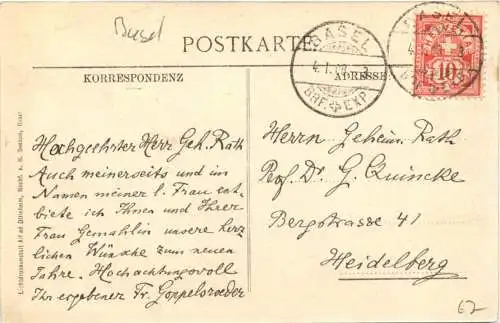 Basel
POSTKARTE
BASEL
BRF. EXP.
HELVETIA
10
KORRESPONDENZ
ADRESSE
Hochgeehrter Herr Geh. Rath
Auch meinerseits und im
Namen meiner l. Frau ent-
biete ich Ihnen und Ihrer
Frau Gemahlin unsere herz-
lichen Wünsche zum neuen
Jahre. Hochachtungsvoll
Ihr ergebener Fr. Goppelsroeder
Herrn Geheim. Rath
Prof. Dr. G. Quincke
Bergstrasse 41
Heidelberg
62